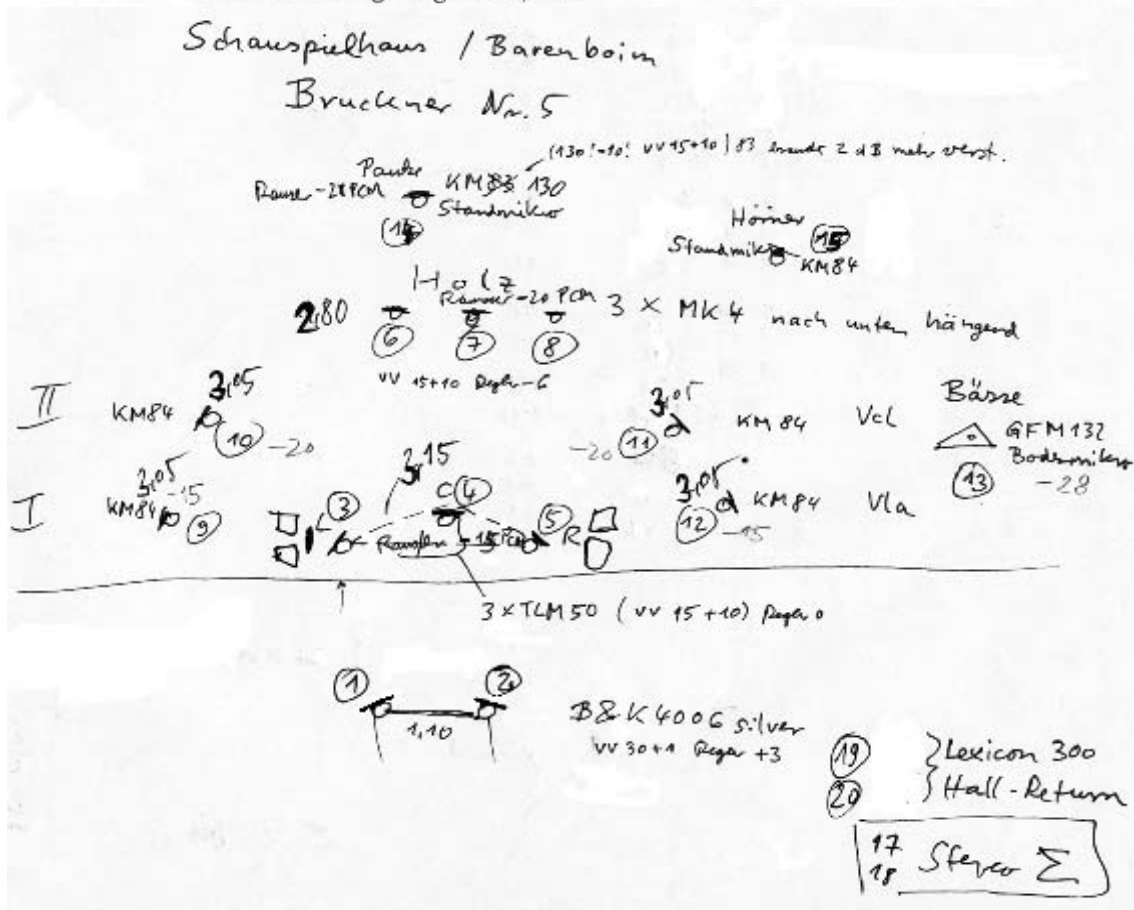 Schauspielhaus / Barenboim
Bruckner Nr. 5
(130! -10! VV 15+10) 83 braucht 2 dB mehr verst.
Pauke
-28 PCM KM83 130
Standmikro
14
Hörner
15
Standmikro
KM84
Holz
-20 PCM
2,80
3 x MK4 nach unten hängend
6 7 8
VV 15+10 Regler -6
II
3,05
KM84
10 -20
3,05
-20 11
KM84 Vcl
Bässe
GFM132
Bodenmikro
13 -28
I
3,05
-15
KM84
9
3,15
3
C 4
5 R
-15 PCM
3,05
KM84 Vla
12 -15
3 x TLM50 (VV 15+10) Regler 0
1 2
1,10
B&K 4006 silver
VV 30+1 Regler +3
19 } Lexicon 300
20 } Hall-Return
17
18 Stereo Σ